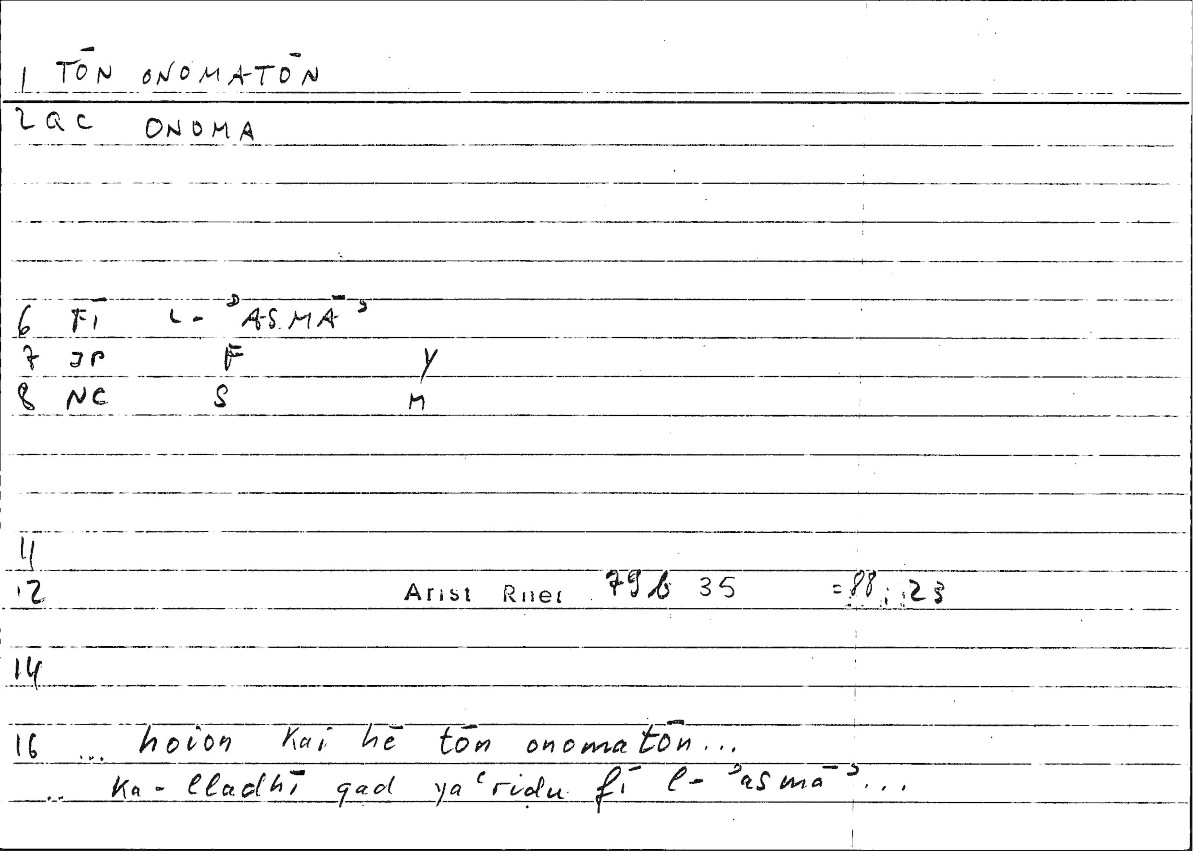 1 TŌN ONOMATŌN
2 QC ONOMA
6 FĪ L- ʾASMĀʾ
7 JP F Y
8 NC S M
11
12 Arist Rhet 79b 35 = 88, 23
14
16 ... hoion kai hē tōn onomatōn...
.. ka-lladhī qad yaʿriḍu fī l-ʾasmāʾ...